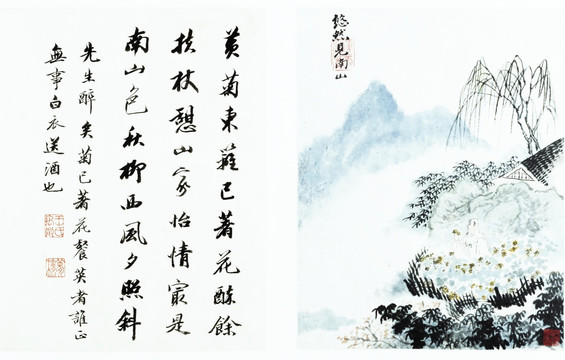 黄菊東籬已著花醉餘
扶杖憩山家怡情最是
南山色秋柳西風夕照斜
先生醉矣菊已著花餐英者誰正
無事白衣送酒也
悠然
見南山